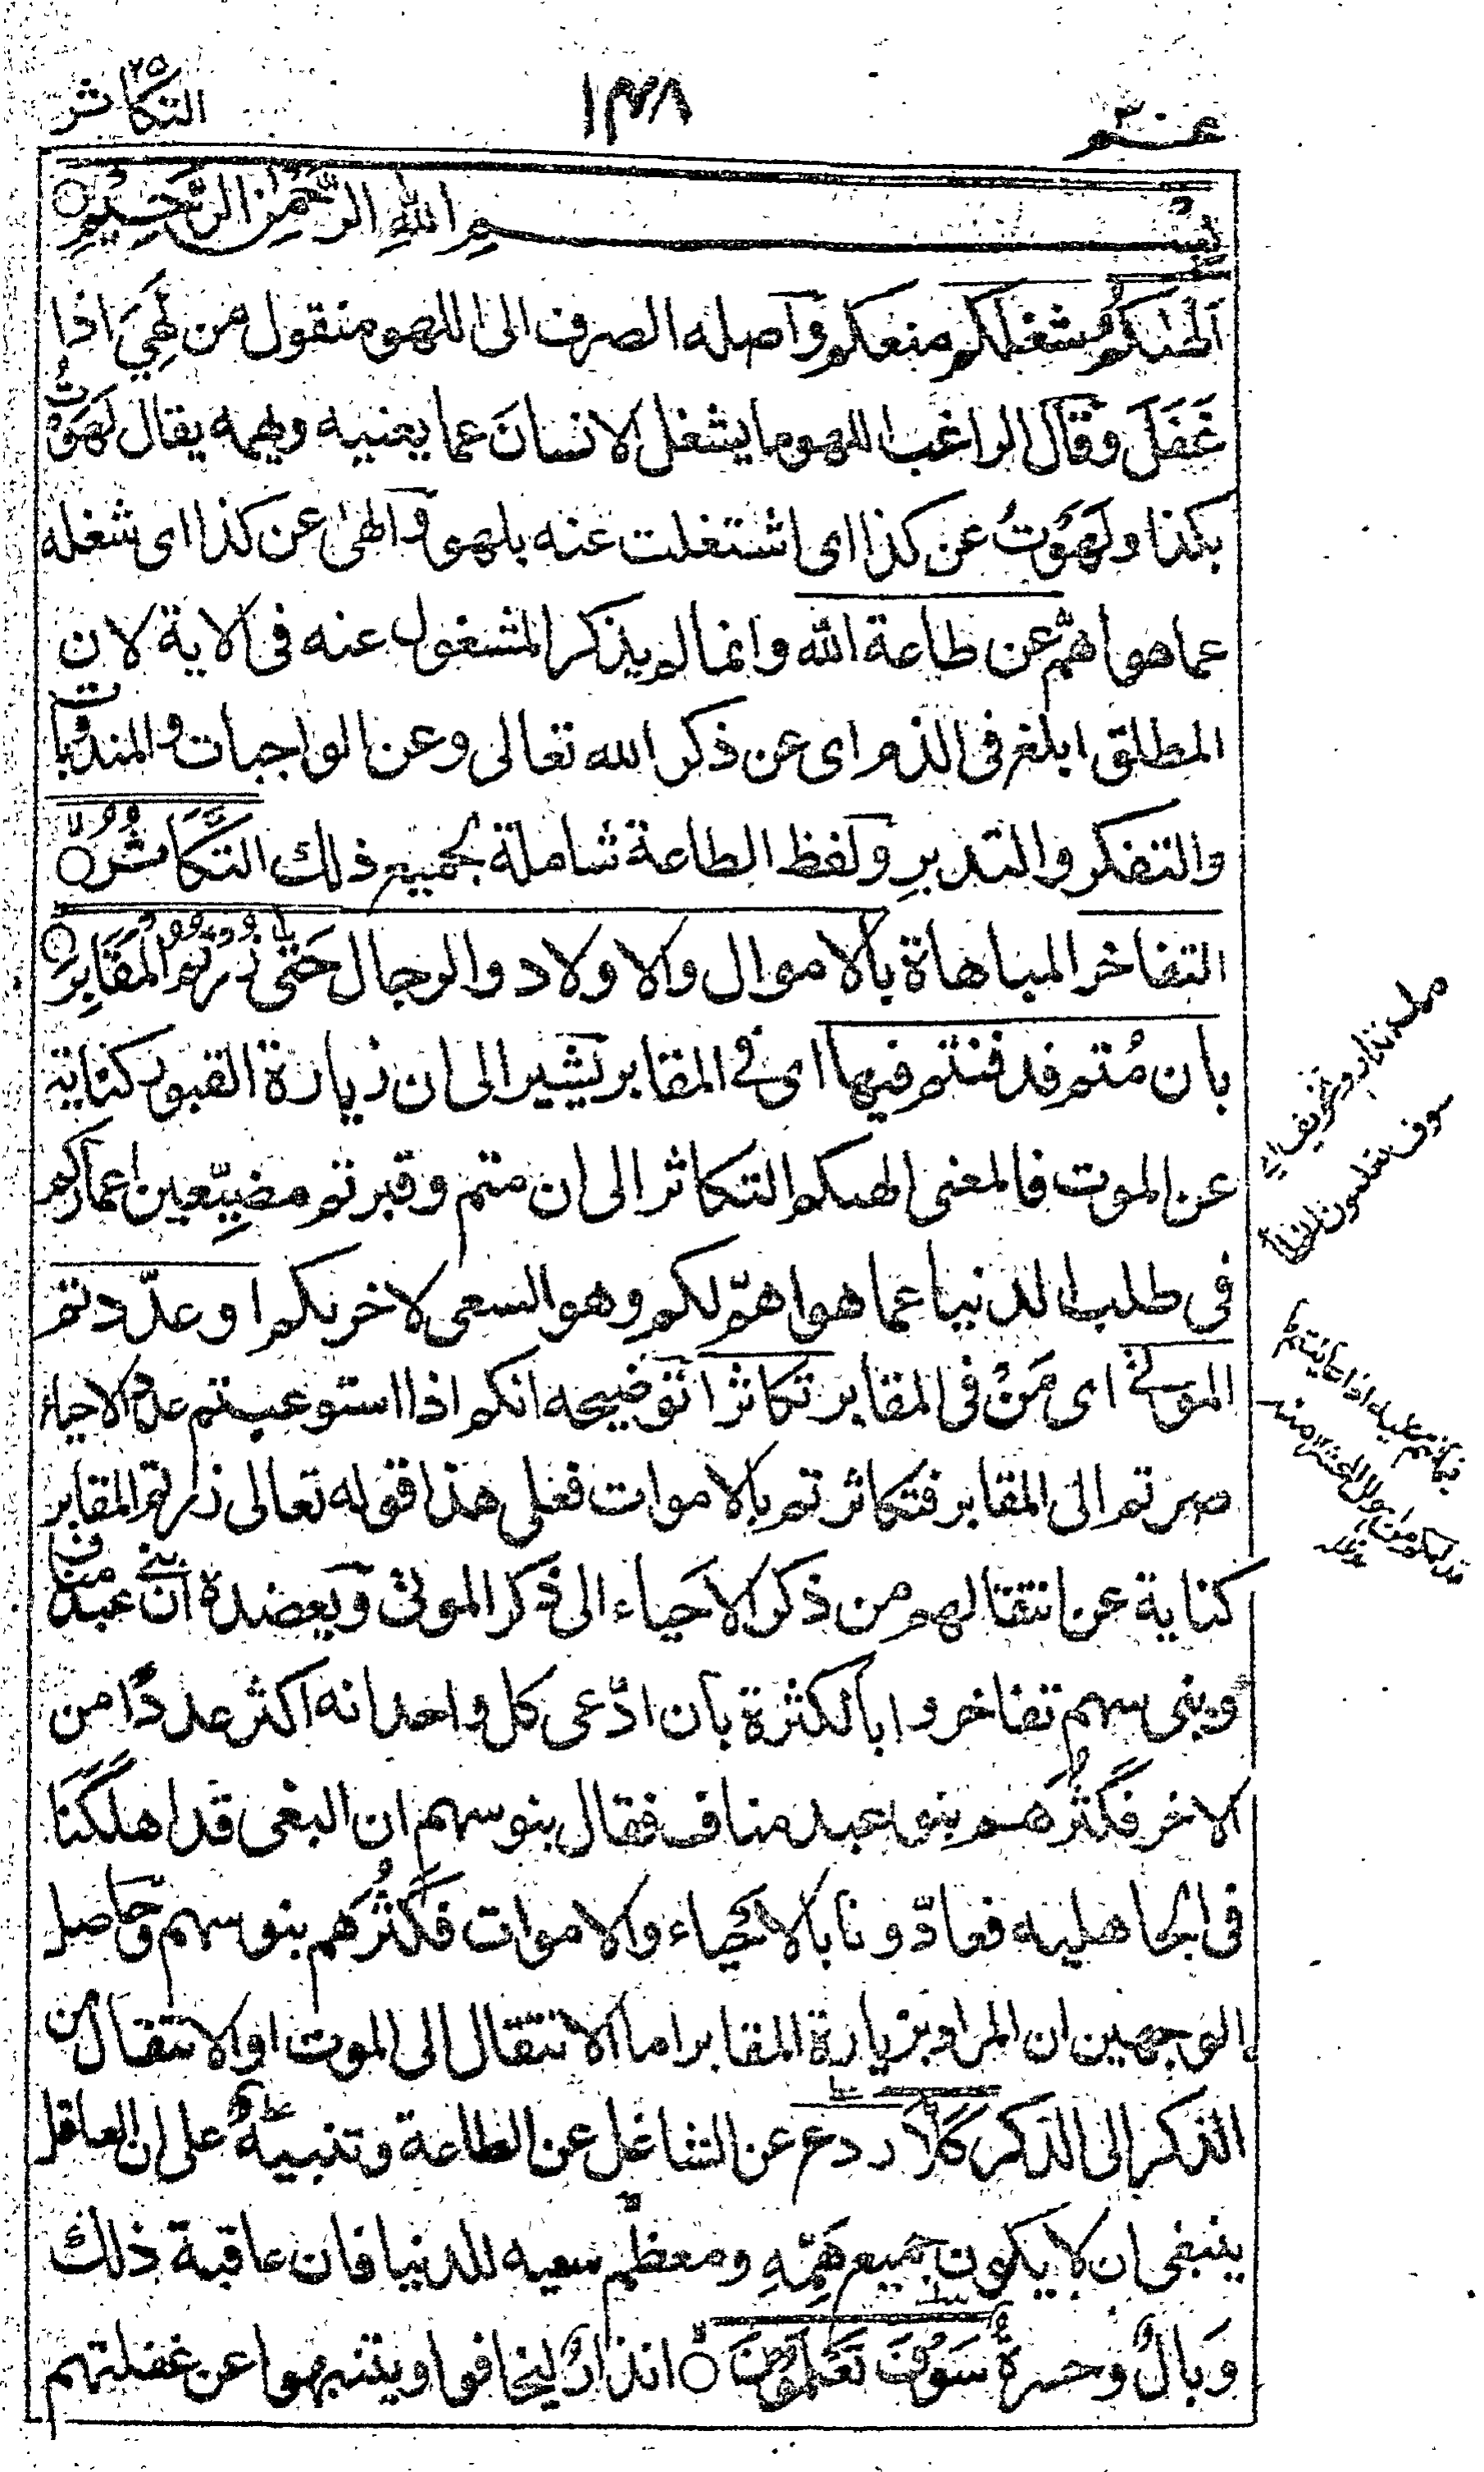 عم ٣٠
١٣٨
التكاثر
بسم الله الرحمن الرحيم
اَلْهٰىكُمُ شغلكم منعكم وآصله الصرف الى اللهو منقول من لَهِيَ اذا
غَفَلَ وقال الراغب اللهو ما يشغل الانسانَ عما يعنيه ويهمه يقال لَهَوْتُ
بكذا ولَهَوْتُ عن كذا اى اشتغلت عنه بلهو وآلهىٰ عن كذا اى شغله
عما هو اهمّ عن طاعة الله وانما لم يذكر المشغول عنه فى الاية لان
المطلق ابلغ فى الذم اى عن ذكر الله تعالى وعن الواجبات والمندوبات
والتفكر والتدبرِ ولفظ الطاعة شاملة لجميع ذلك التَّكَاثُرُ
التفاخر المباهاة بالاموال والاولاد والرجال حَتّٰى زُرْتُمُ الْمَقَابِرَ
بان مُتم فدفنتم فيها اى فى المقابر يشير الى ان زيارة القبور كناية
عن الموت فالمعنى الهىكم التكاثر الى ان متم وقبرتم مضيِّعين اعماركم
فى طلب الدنيا عما هو اهمّ لكم وهو السعى لاخريكم او عدّدتم
الموتى اى مَنْ فى المقابر تكاثرا توضيحه انكم اذا استوعبتم عدد الاحياء
صرتم الى المقابر فتكاثرتم بالاموات فعلى هذا قوله تعالى زرتم المقابر
كناية عن انتقالهم من ذكر الاحياء الى ذكر الموتى ويعضده ان بنى عبد مناف
وبنى سهم تفاخروا بالكثرة بان ادّعى كل واحد انه اكثر عددًا من
الاخر فكَثُرَهم بنو عبد مناف فقال بنو سهم ان البغى قد اهلكَنَا
فى الجاهليه فعادّونا بالاحياء والاموات فكَثُرَهم بنو سهم وحاصل
الوجهين ان المراد بزيارة المقابر اما الانتقال الى الموت او الانتقال من
الذكر الى الذكر كَلَّا ردع عن الشاغل عن الطاعة وتنبيهٌ على ان العاقل
ينبغى ان لا يكون جميع هَمِّهِ ومعظم سعيه للدنيا فان عاقبة ذلك
وَبالٌ وحسرةٌ سَوْفَ تَعْلَمُوْنَ انذارٌ ليخافوا ويتنبهوا عن غفلتهم
سوف تعلمون